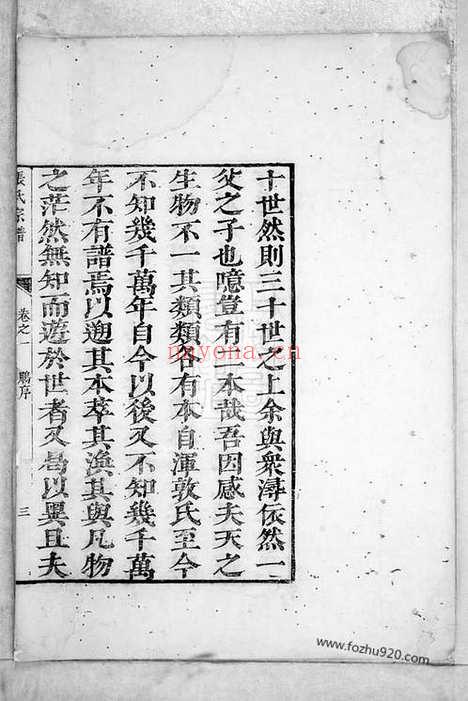 十世然則三十世之上余與衆潯依然一
父之子也噫豈有二本哉吾因感夫天之
生物不一其類類各有本自渾敦氏至今
不知幾千萬年自今以後又不知幾千萬
年不有譜焉以遡其本萃其渙其與凡物
之茫然無知而遊於世者又烏以異且夫
張氏宗譜
卷之一
鵬序
三
nayona.cn
www.fozhu920.com